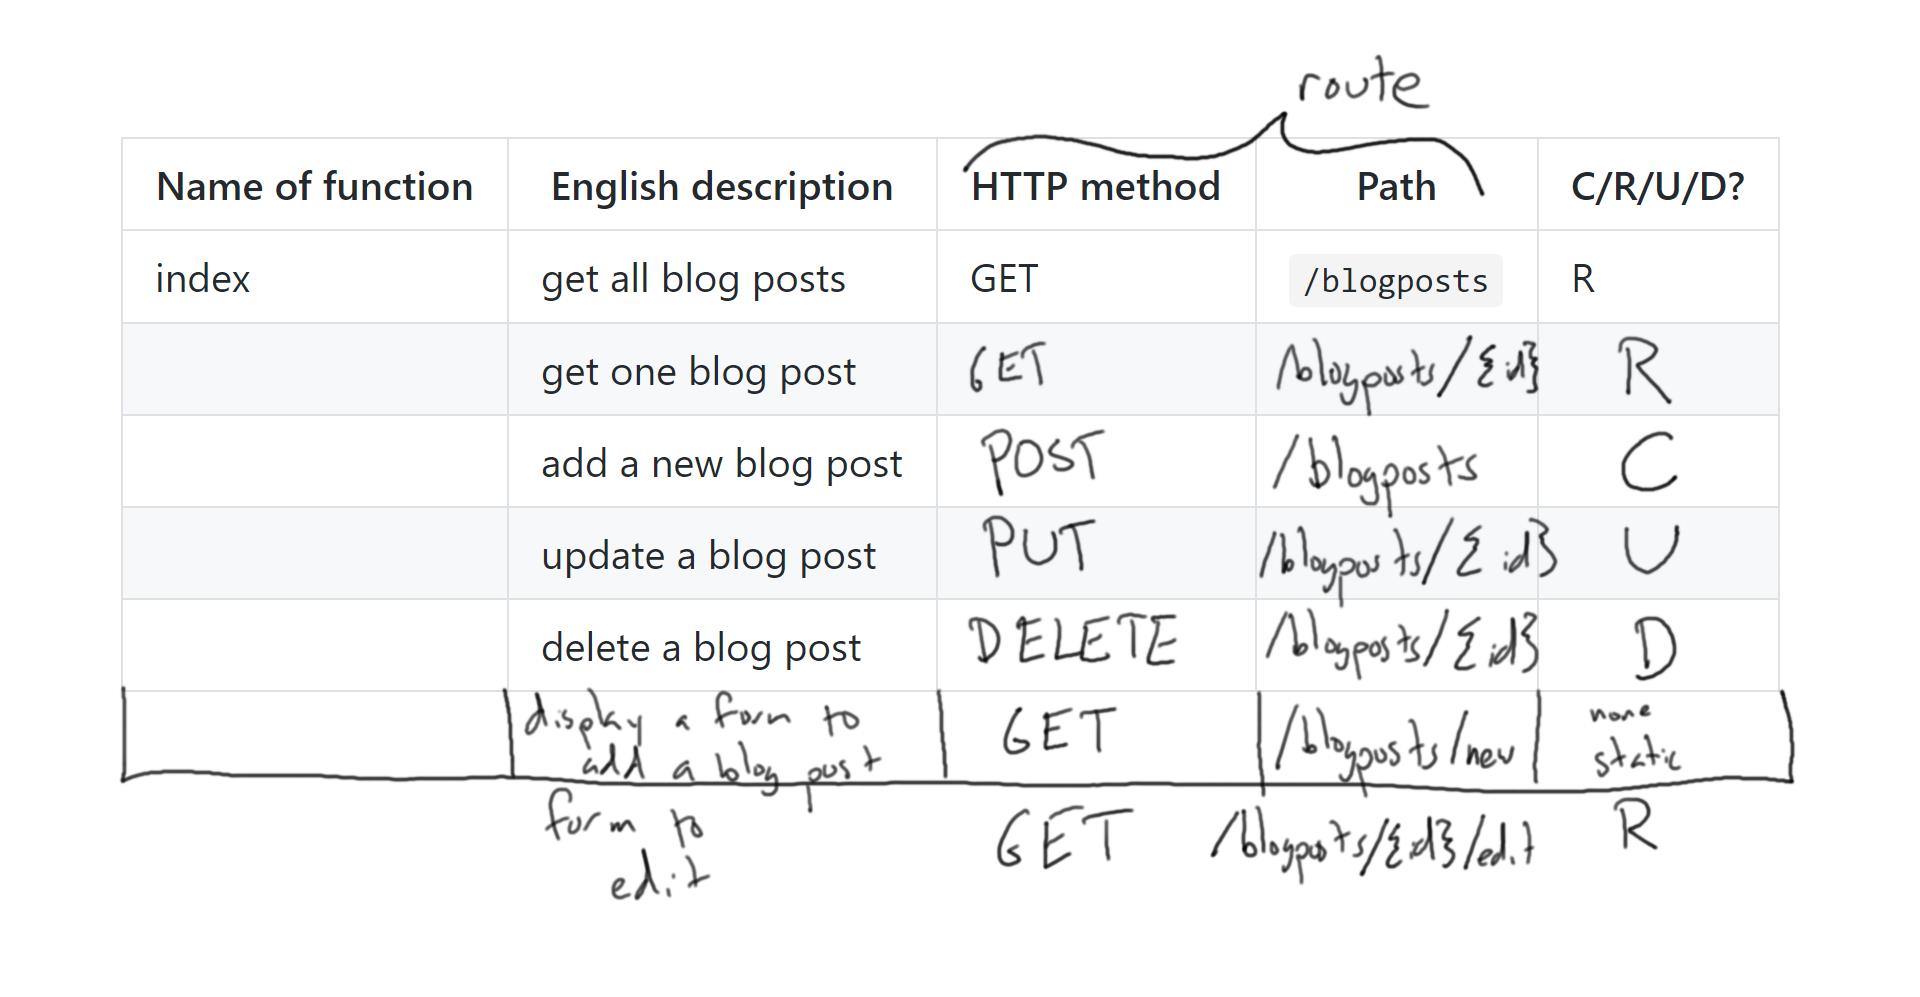 route
Name of function English description HTTP method Path C/R/U/D?
index get all blog posts GET /blogposts R
get one blog post GET /blogposts/{id} R
add a new blog post POST /blogposts C
update a blog post PUT /blogposts/{id} U
delete a blog post DELETE /blogposts/{id} D
display a form to GET /blogposts/new none
add a blog post static
form to GET /blogposts/{id}/edit R
edit